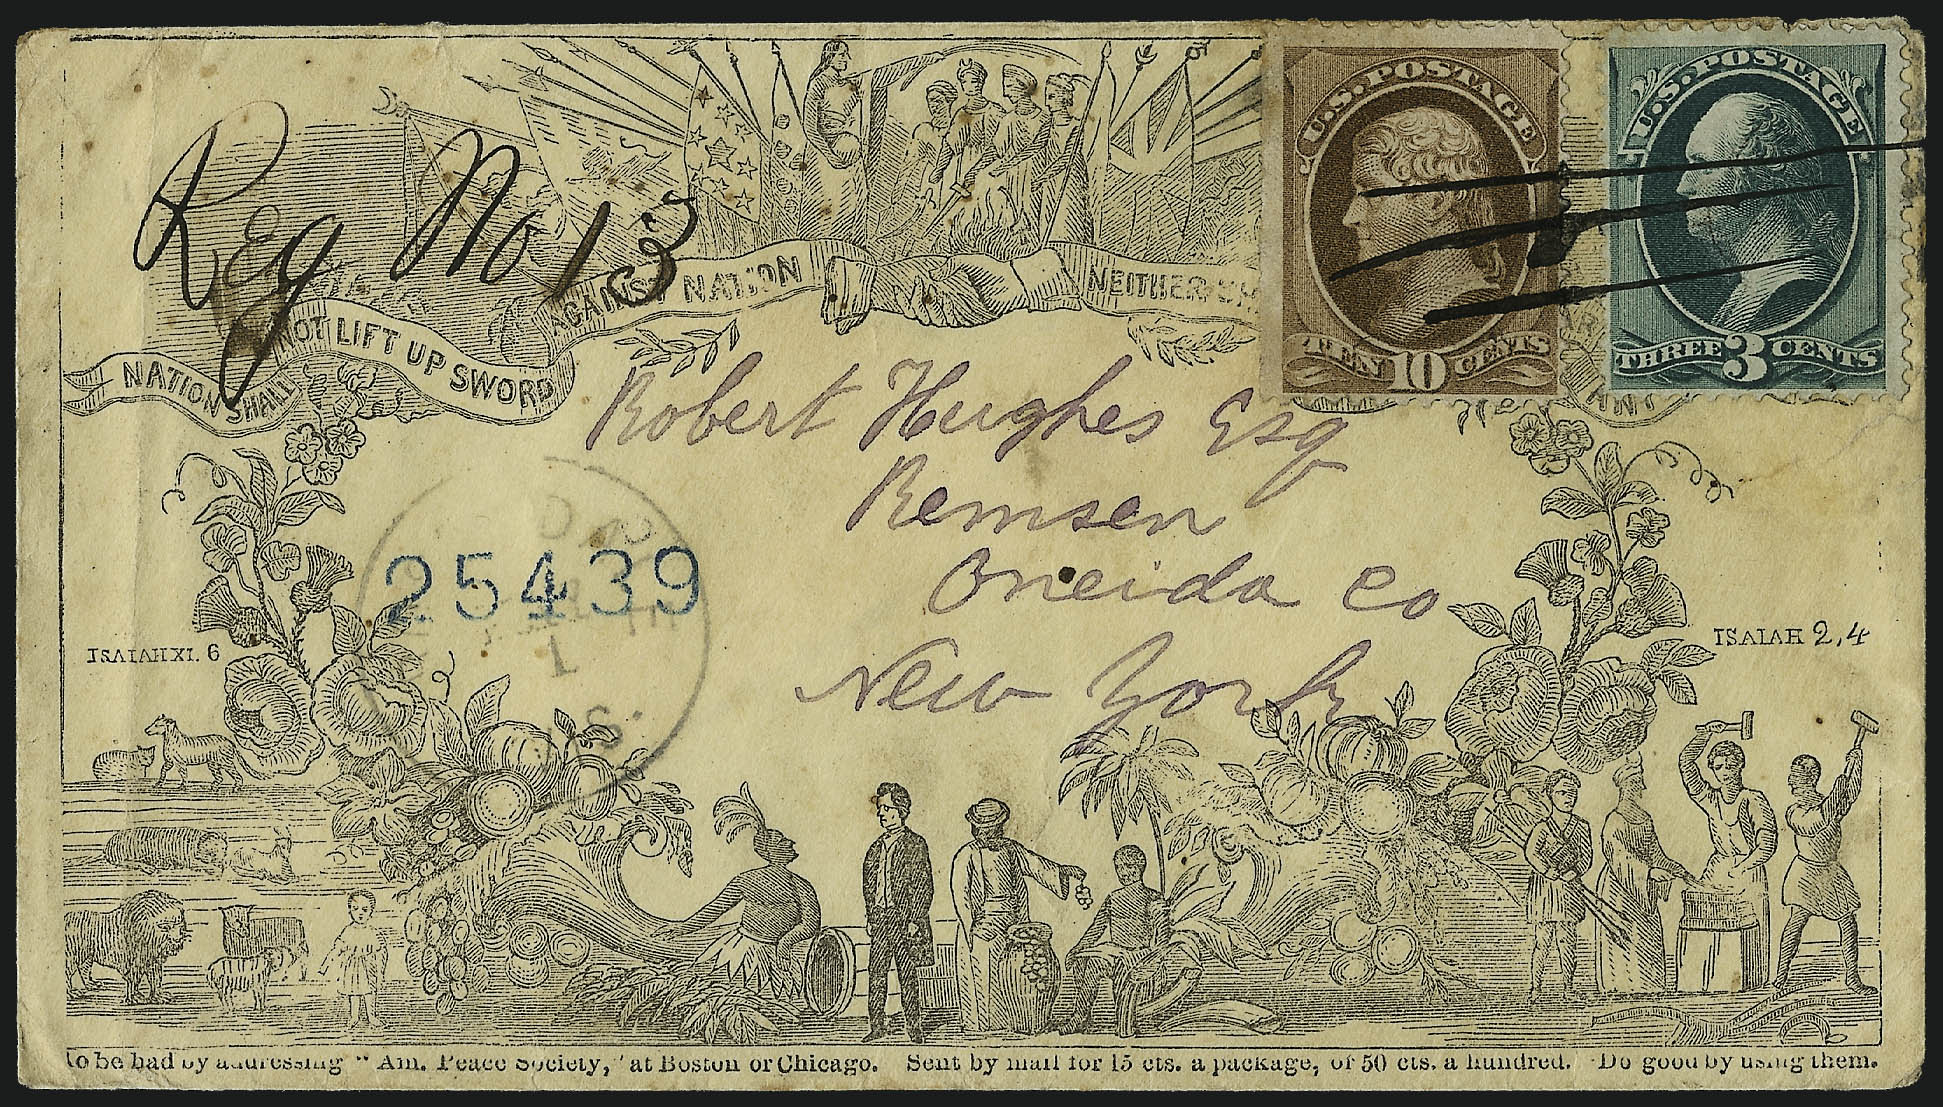 Reg No 13
U.S. POSTAGE
TEN 10 CENTS
U.S. POSTAGE
THREE 3 CENTS
NATION SHALL NOT LIFT UP SWORD AGAINST NATION
NEITHER
Robert Hughes Esq
Remsen
Oneida Co
New York
25439
1
ISAIAH XI. 6
ISAIAH 2,4
to be had by addressing " Am. Peace Society, ' at Boston or Chicago. Sent by mail for 15 cts. a package, or 50 cts. a hundred. Do good by using them.